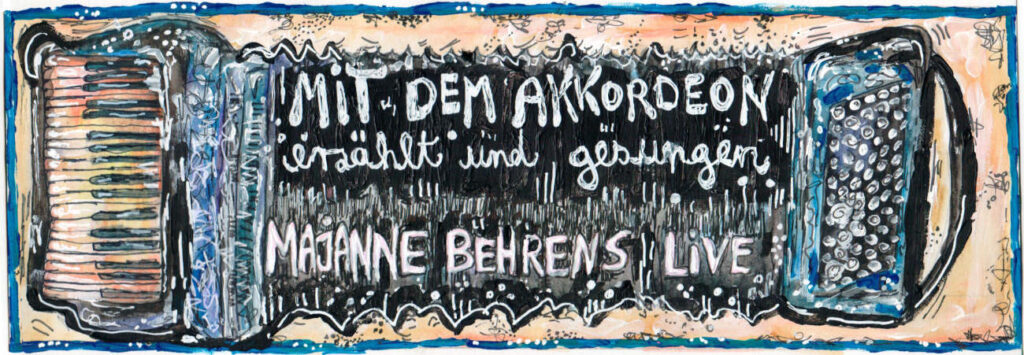 MIT DEM AKKORDEON
erzählt und gesungen
MAJANNE BEHRENS LIVE